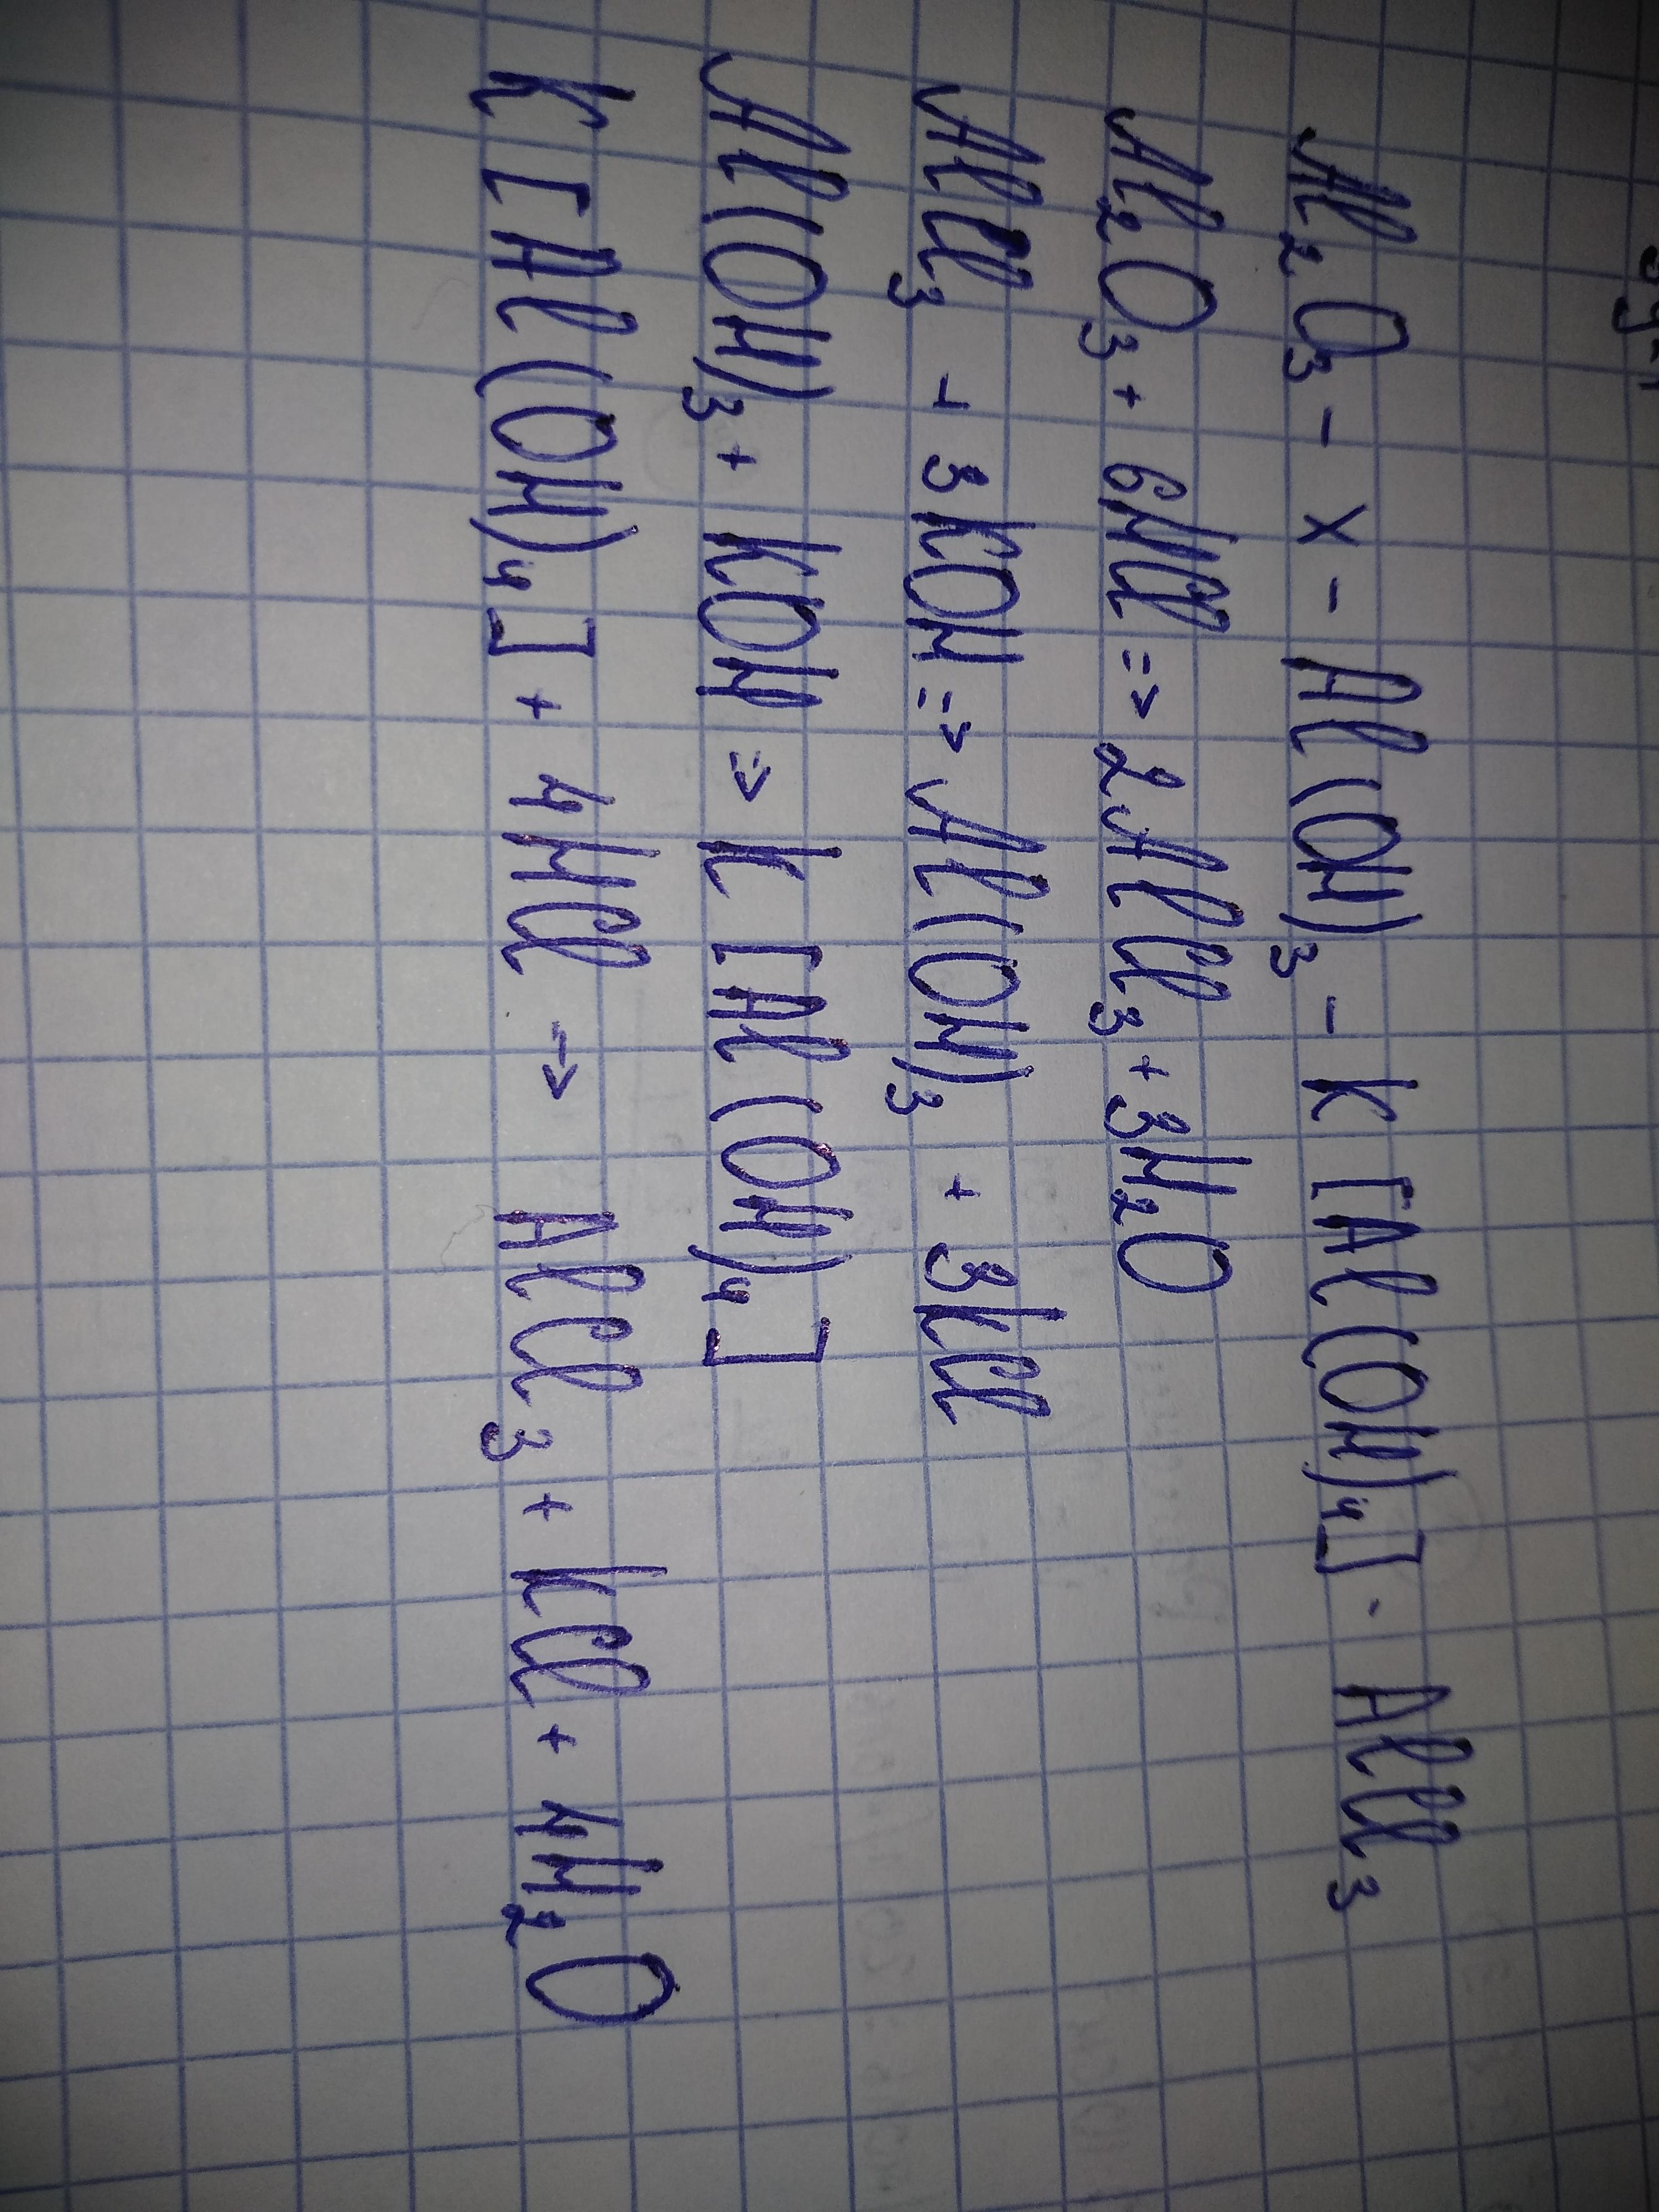 Al₂O₃ - x - Al(OH)₃ - K[Al(OH)₄] - AlCl₃
Al₂O₃ + 6HCl => 2AlCl₃ + 3H₂O
AlCl₃ + 3KOH => Al(OH)₃ + 3KCl
Al(OH)₃ + KOH => K[Al(OH)₄]
K[Al(OH)₄] + 4HCl => AlCl₃ + KCl + 4H₂O